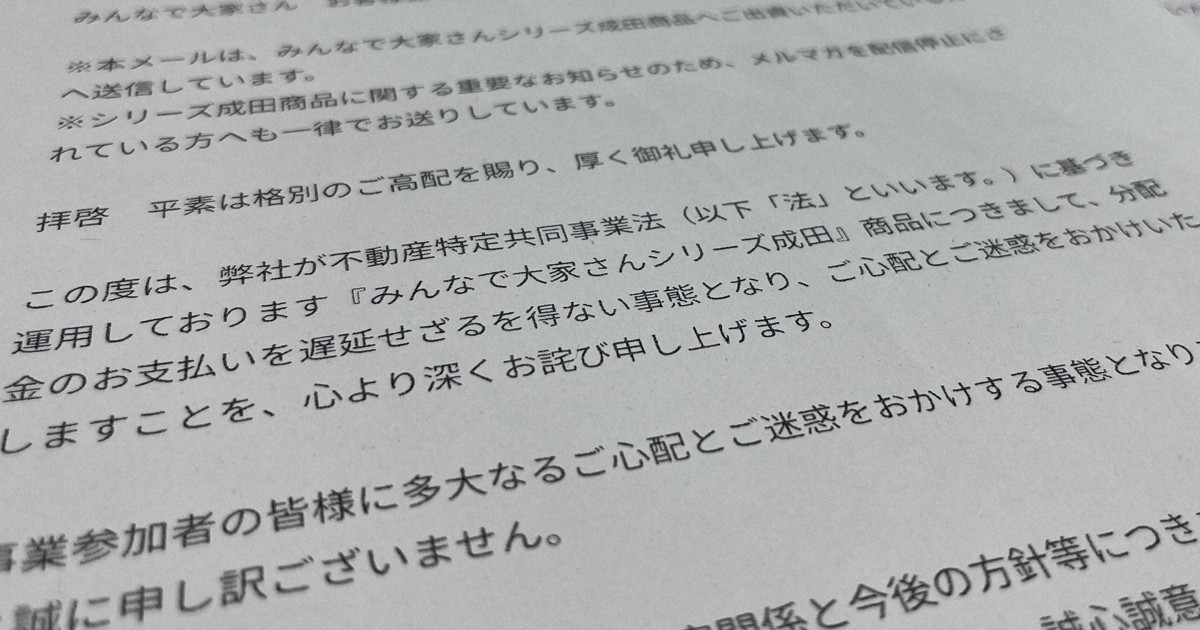 みんなで大家さん　お客様
※本メールは、みんなで大家さんシリーズ成田商品へご出資いただいている
へ送信しています。
※シリーズ成田商品に関する重要なお知らせのため、メルマガを配信停止にさ
れている方へも一律でお送りしています。
拝啓　平素は格別のご高配を賜り、厚く御礼申し上げます。
この度は、弊社が不動産特定共同事業法（以下「法」といいます。）に基づき
運用しております『みんなで大家さんシリーズ成田』商品につきまして、分配
金のお支払いを遅延せざるを得ない事態となり、ご心配とご迷惑をおかけいた
しますことを、心より深くお詫び申し上げます。
事業参加者の皆様に多大なるご心配とご迷惑をおかけする事態となり
誠に申し訳ございません。
関係と今後の方針等につき
誠心誠意